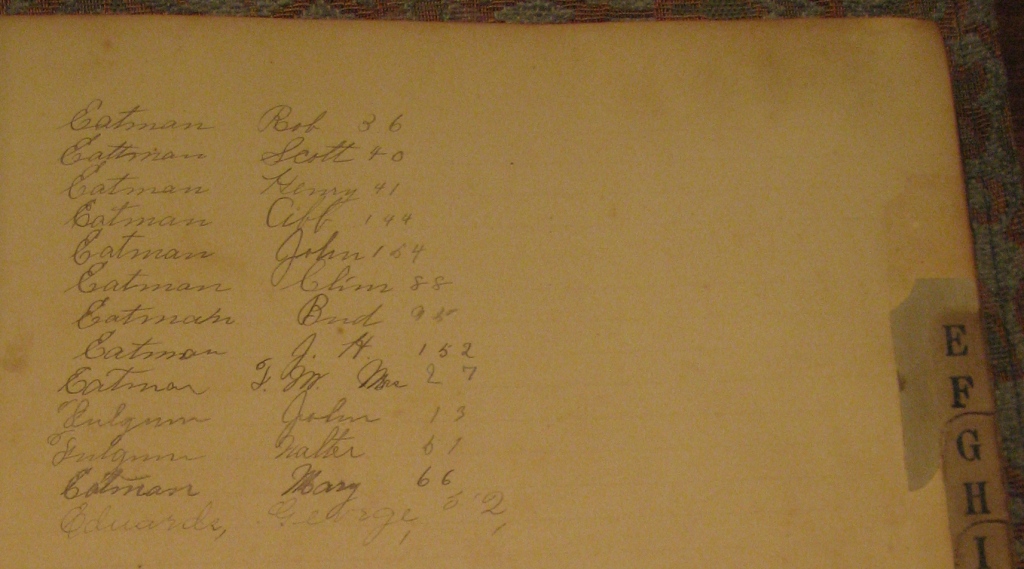 Eatman Rob 36
Eattman Scott 40
Eatman Henry 41
Eatman Cibb 144
Eatman John 154
Eatman Clim 88
Eatman Bud 95
Eatmon J. H 152
Eatmon F. M Mrs 27
Fulgum John 13
Fulgum Walter 51
Eatman Mary 66
Eduards, George, 52,
E
F
G
H
I